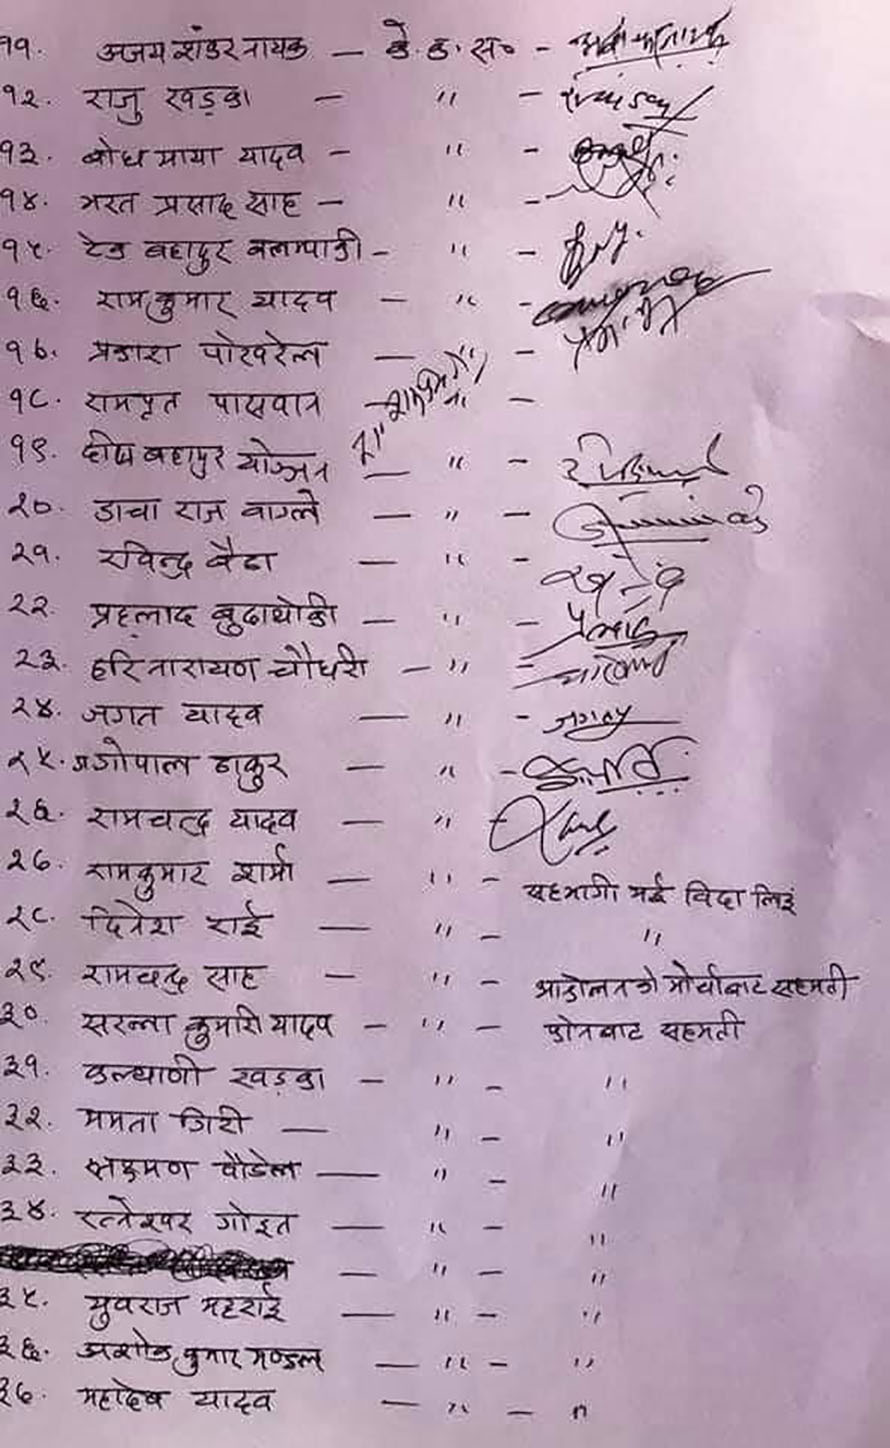 ११. अजय शंकर नायक — के. क. स० -
१२. राजु खड्का — " -
१३. बोध माया यादव — " -
१४. भरत प्रसाद साह — " -
१५. टेक बहादुर बलम्पाकी - " -
१६. रामकुमार यादव — " -
१७. प्रकाश पोखरेल — " -
१८. रामपृत पासवान — " -
१९. दीप बहादुर योञ्जन — " -
२०. डाचा राज वाग्ले — " -
२१. रविन्द्र बैठा — " -
२२. प्रह्लाद बुढाथोकी — " -
२३. हरिनारायण चौधरी — " -
२४. जगत यादव — " -
२५. जगोपाल ठाकुर — " -
२६. रामचन्द्र यादव — " -
२७. रामकुमार शर्मा — " - सहभागी भई विदा लिई
२८. दिनेश राई — " - "
२९. रामचन्द्र साह — " - आन्दोलनको मोर्चाबाट सहमती
३०. सरला कुमारी यादव — " - फोनबाट सहमती
३१. कल्याणी खड्का — " - "
३२. ममता गिरी — " - "
३३. लक्ष्मण पौडेल — " - "
३४. रत्नेश्वर गोइत — " - "
— " - "
३५. युवराज भट्टराई — " - "
३६. अशोक कुमार मण्डल — " - "
३७. महादेव यादव — " - "